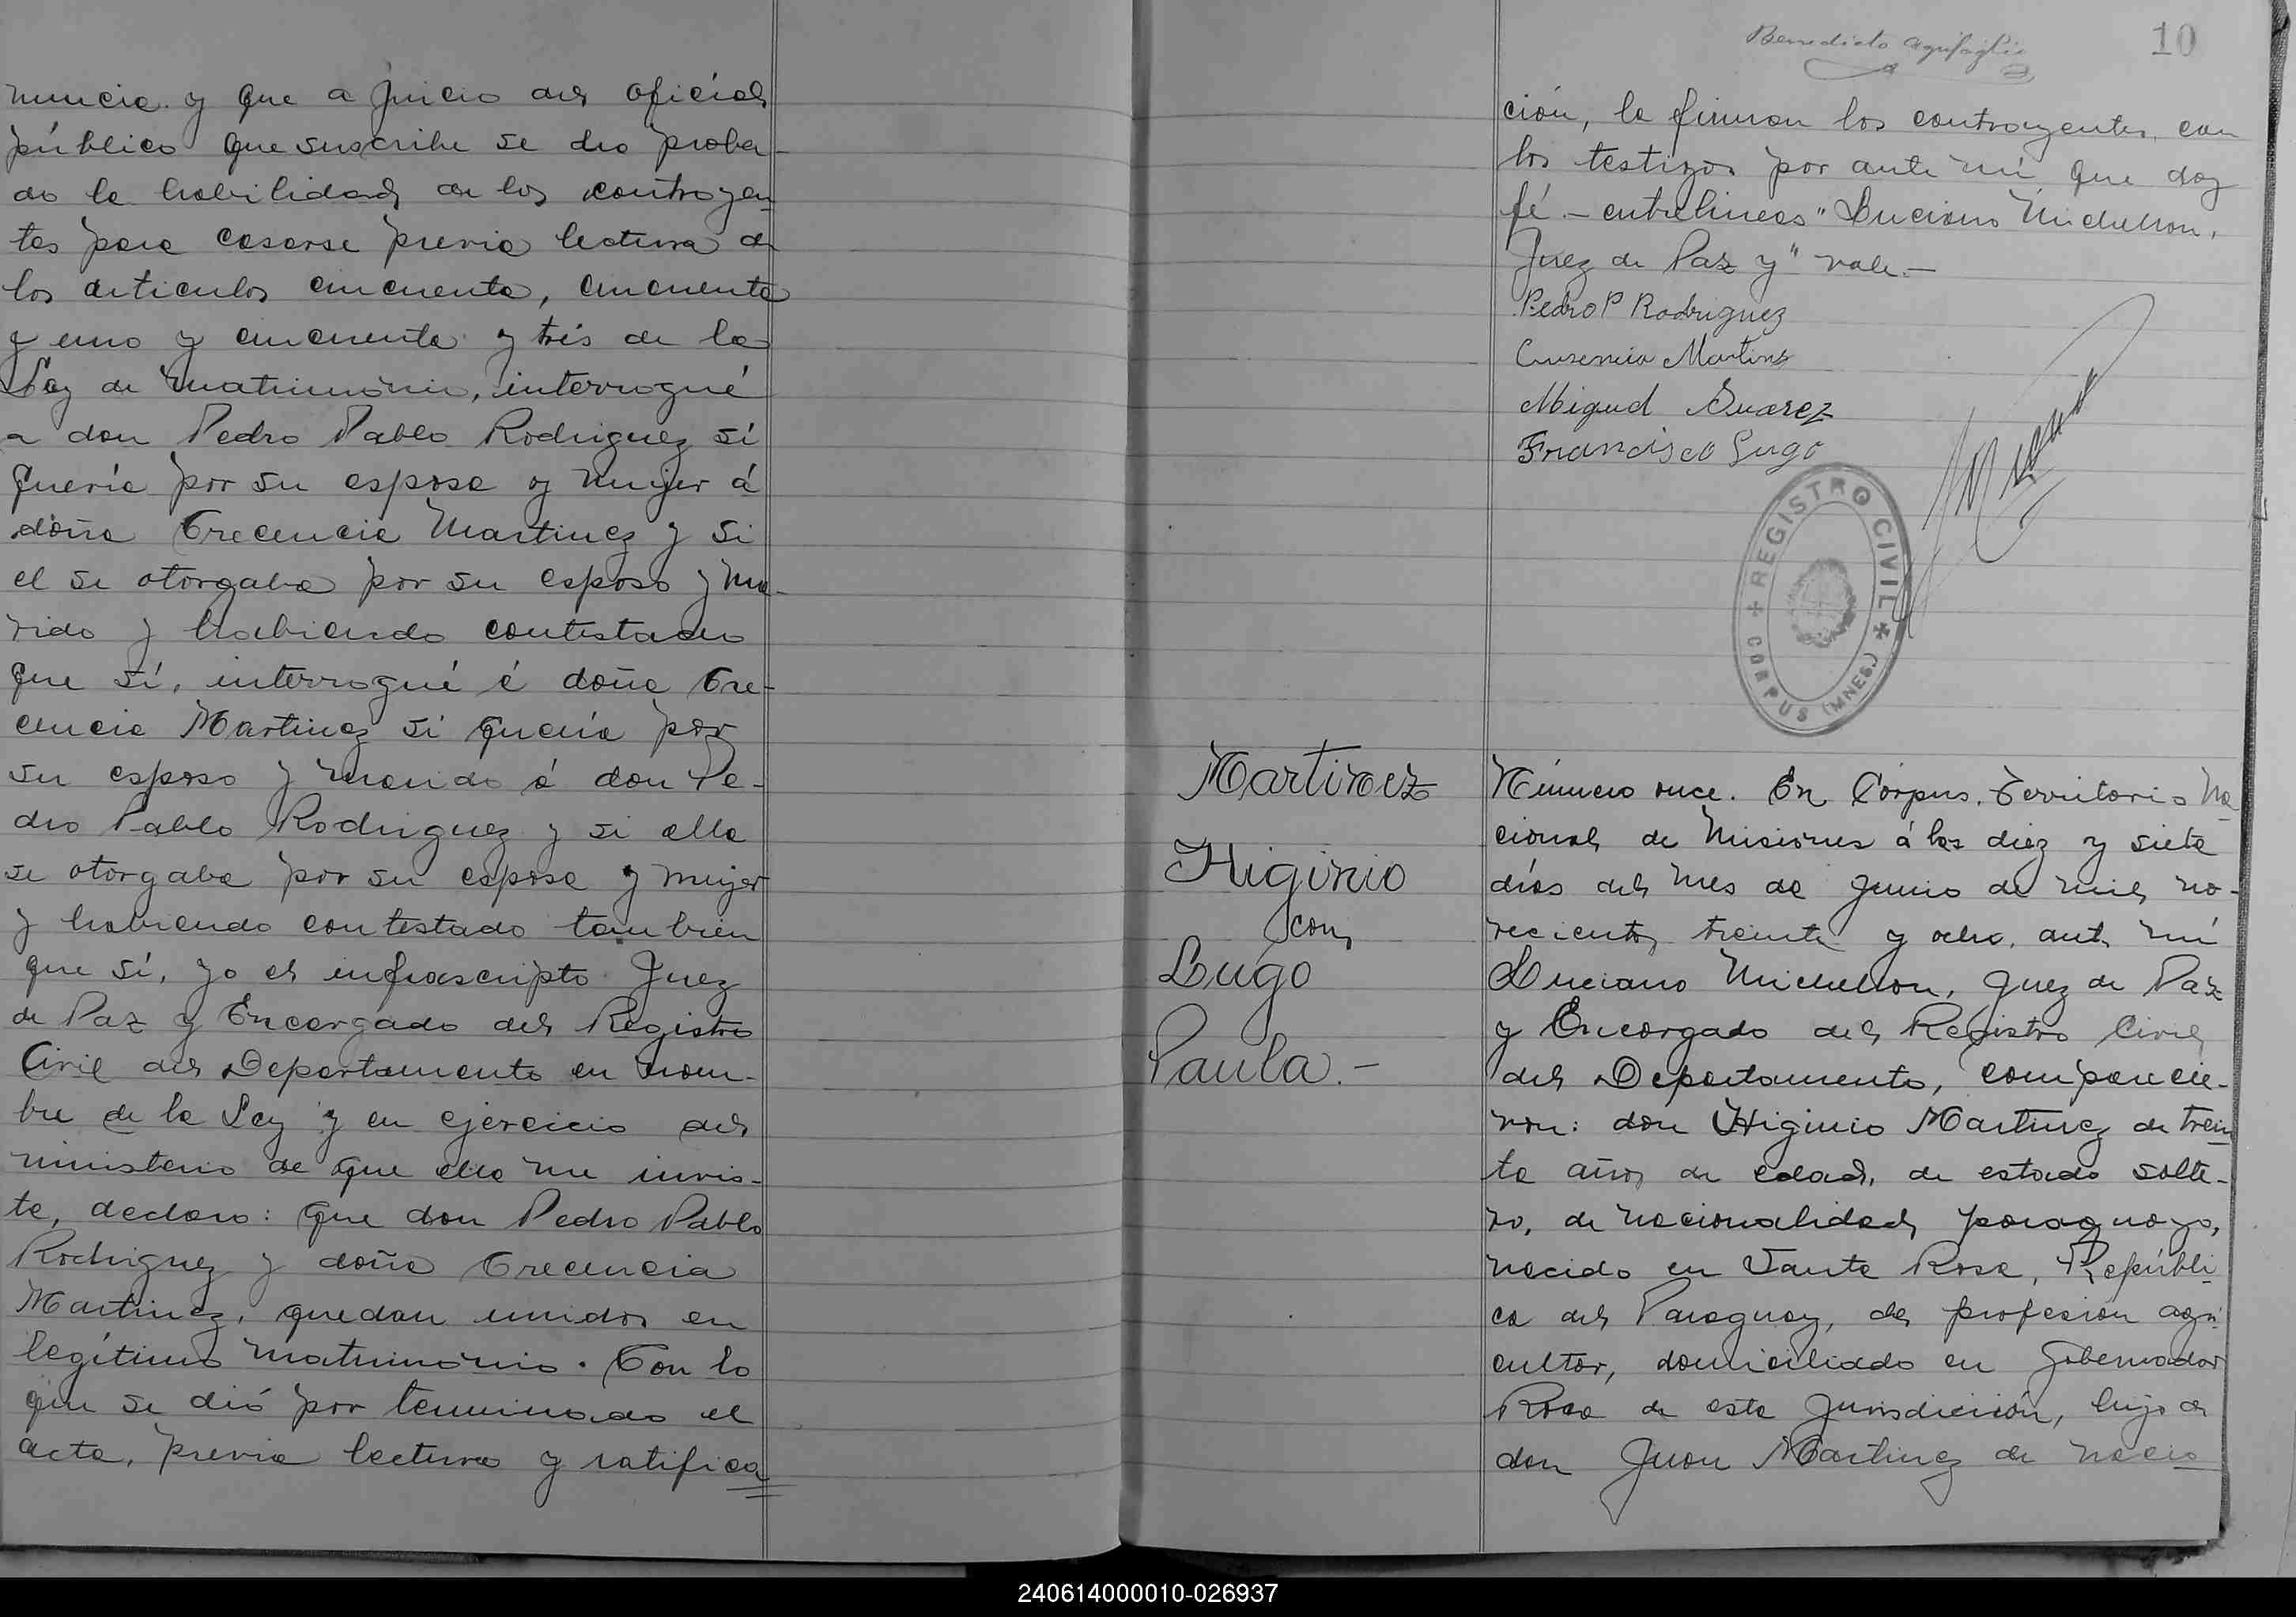 nuncia y que a juicio del oficial
público que suscribe se dio proba-
do la habilidad de los contrayen-
tes para casarse previa lectura de
los articulos cincuenta, cincuenta
y uno y cincuenta y trés de la
Ley de matrimonio, interrogué
a don Pedro Pablo Rodriguez si
quería por su esposa y mujer á
doña Crecencia Martinez y si
el se otorgaba por su esposo y ma-
rido y habiendo contestado
que sí, interrogué á doña Cre-
cencia Martinez si quería por
su esposo y marido á don Pe-
dro Pablo Rodriguez y si ella
se otorgaba por su esposa y mujer
y habiendo contestado tambien
que sí, yo el infrascripto Juez
de Paz y Encargado del Registro
Civil del Departamento en nom-
bre de la Ley y en ejercicio del
ministerio de que ella me invis-
te, declaro: que don Pedro Pablo
Rodriguez y doña Crecencia
Martinez, quedan unidos en
legítimo matrimonio. Con lo
que se dió por terminado el
acta, previa lectura y ratifica
Benedicto
10
ción, la firman los contrayentes, con
los testigos por ante mí que doy
fé.- entrelineas "Luciano Michelson,
Juez de Paz y" vale.-
Pedro P Rodriguez
Martinez
Miguel Suarez
Francisco Lugo
REGISTRO CIVIL
CORPUS (MNES.)
Martinez
Higinio
con
Lugo
Paula.-
Número once. En Córpus, Territorio Na
cional de Misiones á los diez y siete
días del mes de Junio de mil no-
vecientos treinta y ocho, ante mí
Luciano Michelson, Juez de Paz
y Encargado del Registro Civil
del Departamento, comparecie-
ron: don Higinio Martinez de trein
ta años de edad, de estado solte-
ro, de nacionalidad paraguayo,
nacido en Santa Rosa, Repúbli
ca del Paraguay, de profesión agri
cultor, domiciliado en Gobernador
Roca de esta Jurisdicción, hijo de
don Juan Martinez de nacio
240614000010-026937